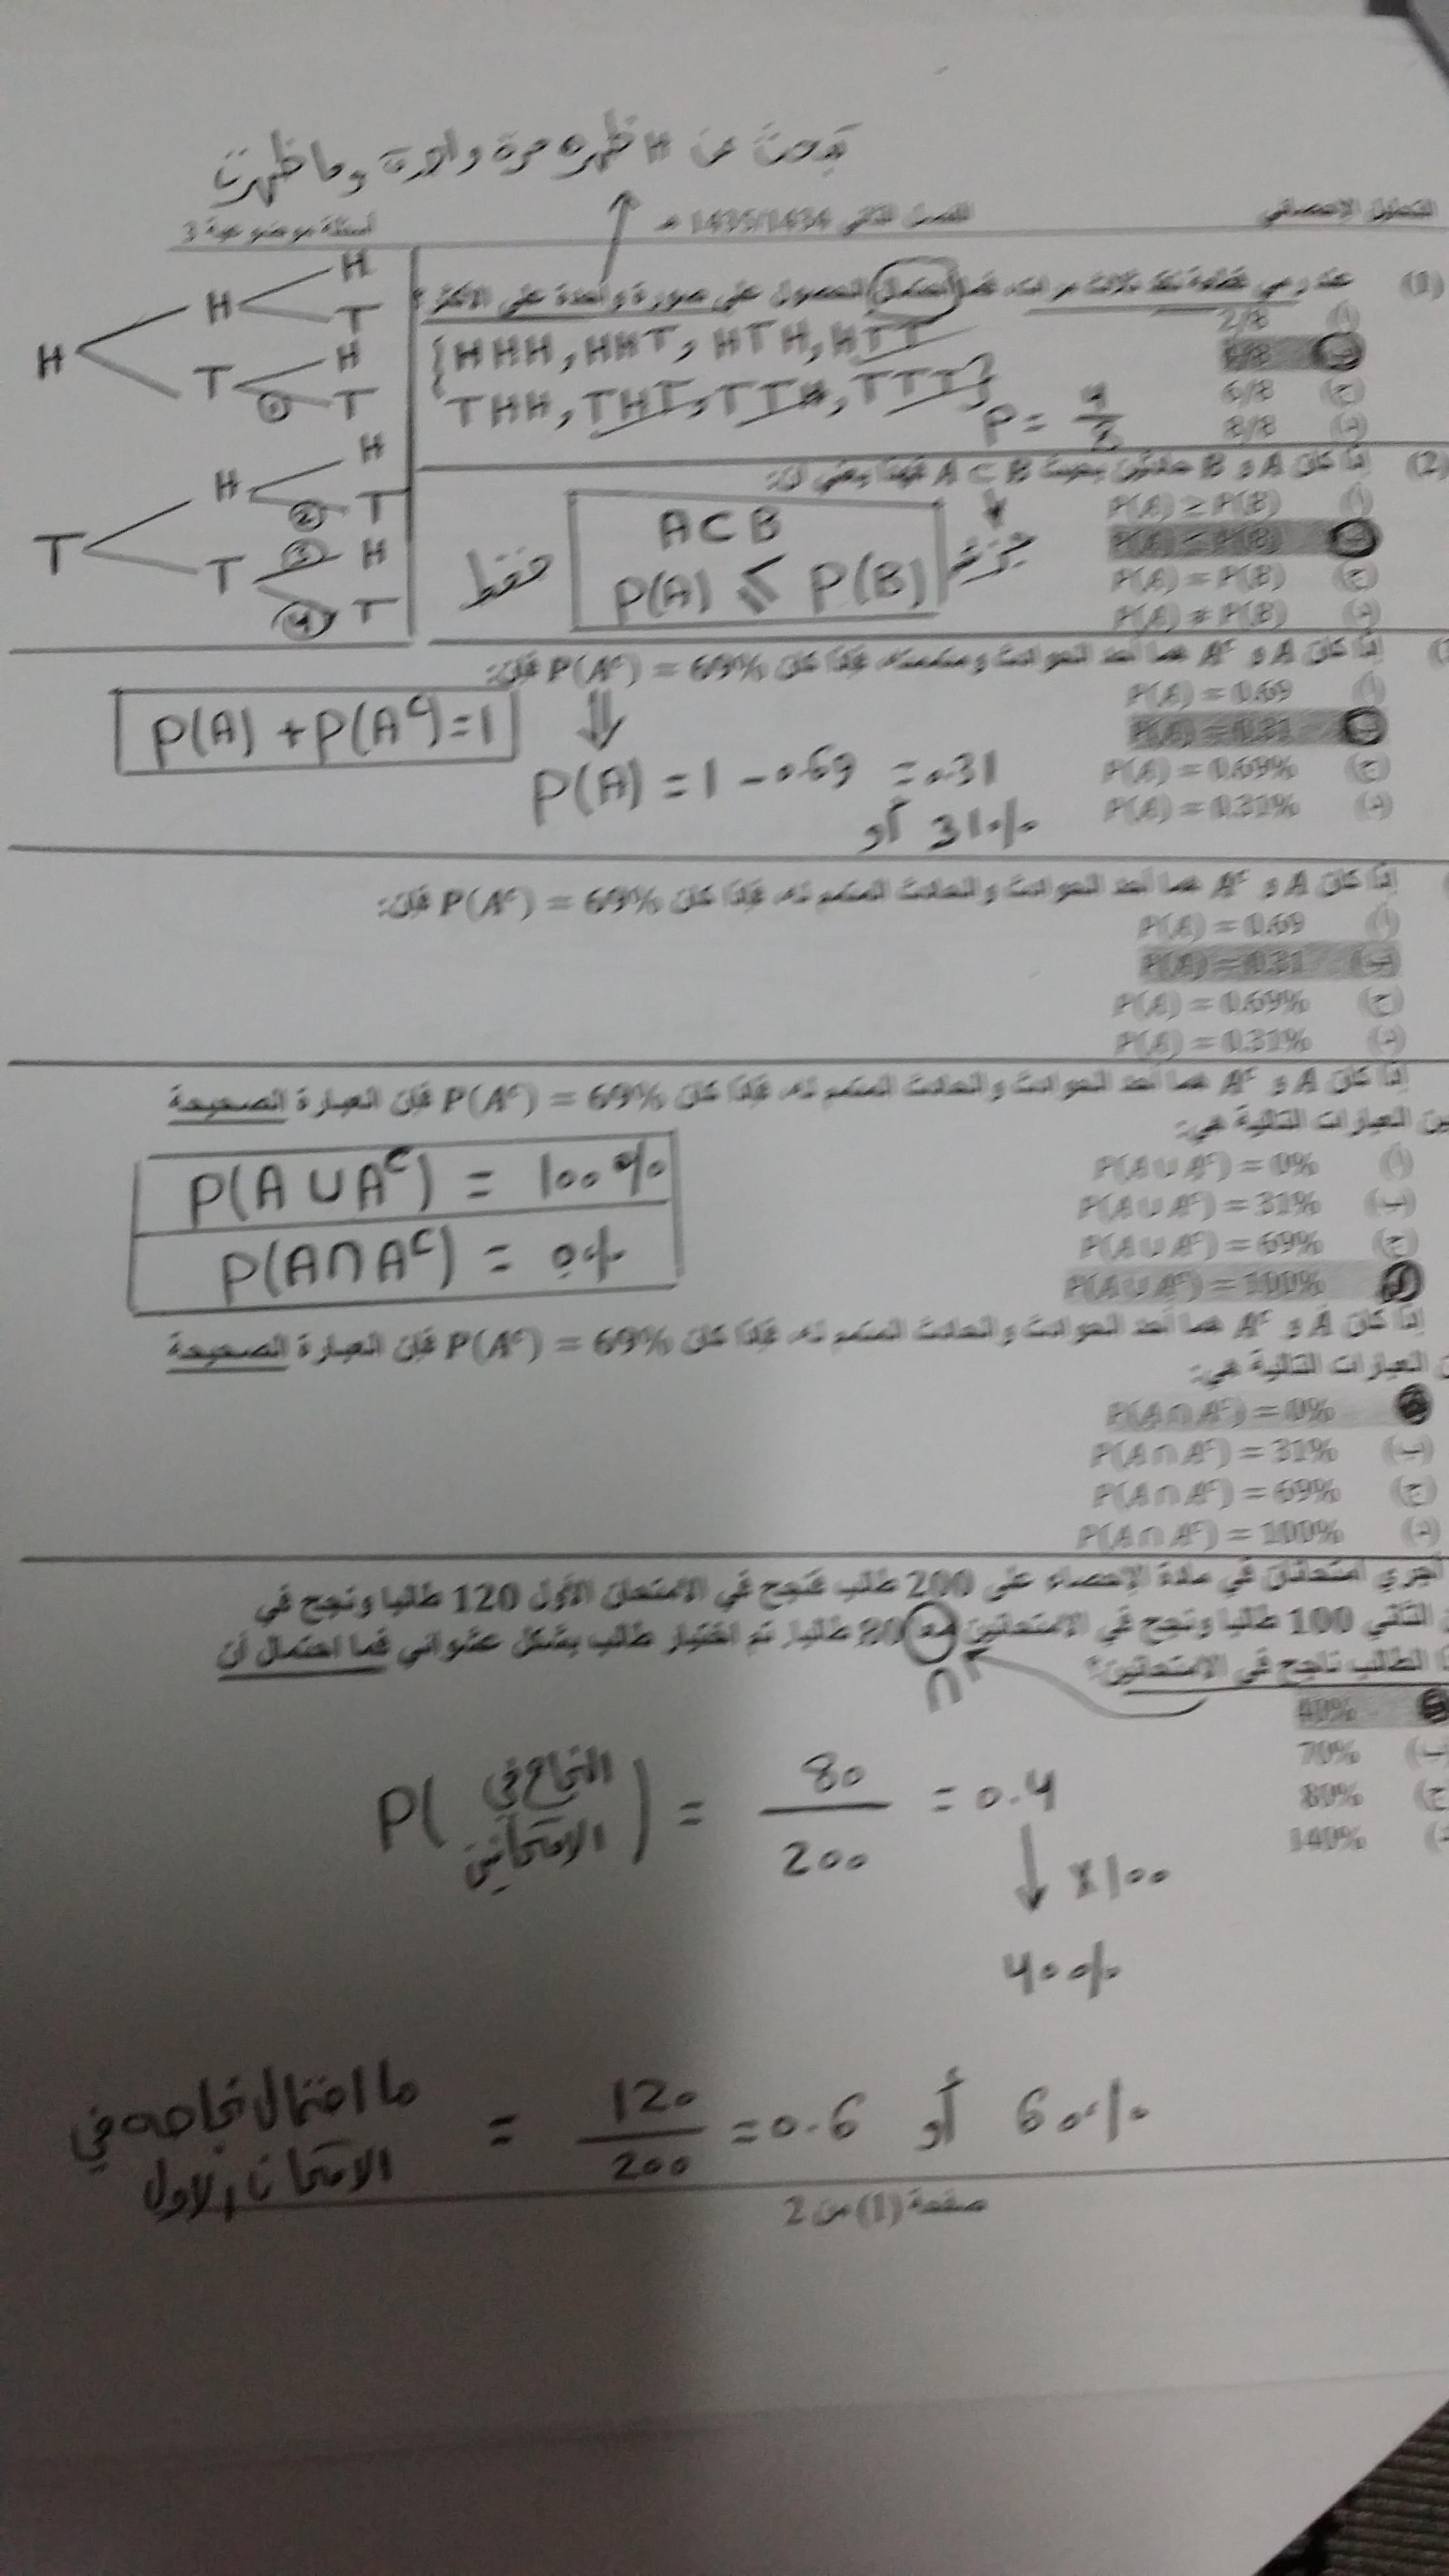 نبحث عن H ظهره مرة واحدة وما ظهرت
التحليل الإحصائي
الفصل الثاني 1435/1434 هـ
أسئلة موضوعية 3
(1) عند رمي قطعة نقد ثلاث مرات، فما احتمال الحصول على صورة واحدة على الأكثر؟
أ) 2/8
ب) 4/8
ج) 6/8
د) 8/8
{HHH, HHT, HTH, HTT
THH, THT, TTH, TTT}
P = 4/8
H
H
H
T
T
H
① T
T
H
H
② T
T
③ H
④ T
(2) إذا كان A و B حادثين بحيث A ⊂ B فهذا يعني أن:
أ) P(A) ≥ P(B)
ب) P(A) ≤ P(B)
ج) P(A) = P(B)
د) P(A) ≠ P(B)
جزء
A⊂B
P(A) ≤ P(B)
فقط
إذا كان A و Aᶜ هما أحد الحوادث ومتممته، فإذا كان P(Aᶜ) = 69% فإن:
أ) P(A) = 0.69
ب) P(A) = 0.31
ج) P(A) = 0.69%
د) P(A) = 0.31%
P(A) + P(Aᶜ) = 1
P(A) = 1 - 0.69 = 0.31
أو 31%
إذا كان A و Aᶜ هما أحد الحوادث والحادث المتمم له، فإذا كان P(Aᶜ) = 69% فإن:
أ) P(A) = 0.69
ب) P(A) = 0.31
ج) P(A) = 0.69%
د) P(A) = 0.31%
إذا كان A و Aᶜ هما أحد الحوادث والحادث المتمم له، فإذا كان P(Aᶜ) = 69% فإن العبارة الصحيحة
ين العبارات التالية هي:
أ) P(A∪Aᶜ) = 0%
ب) P(A∪Aᶜ) = 31%
ج) P(A∪Aᶜ) = 69%
د) P(A∪Aᶜ) = 100%
P(A∪Aᶜ) = 100%
P(A∩Aᶜ) = 0%
إذا كان A و Aᶜ هما أحد الحوادث والحادث المتمم له، فإذا كان P(Aᶜ) = 69% فإن العبارة الصحيحة
ن العبارات التالية هي:
P(A∩Aᶜ) = 0%
ب) P(A∩Aᶜ) = 31%
ج) P(A∩Aᶜ) = 69%
د) P(A∩Aᶜ) = 100%
أجري امتحانان في مادة الإحصاء على 200 طالب فنجح في الامتحان الأول 120 طالبا ونجح في
الثاني 100 طالبا ونجح في الامتحانين معا 80 طالبا. تم اختيار طالب بشكل عشوائي فما احتمال أن
ا الطالب ناجح في الامتحانين؟
∩
40%
ب) 70%
ج) 80%
140%
P(النجاح في الامتحانين) = 80/200 = 0.4
×100
40%
ما احتمال نجاحه في الامتحان الاول = 120/200 = 0.6 أو 60%
صفحة (1) من 2